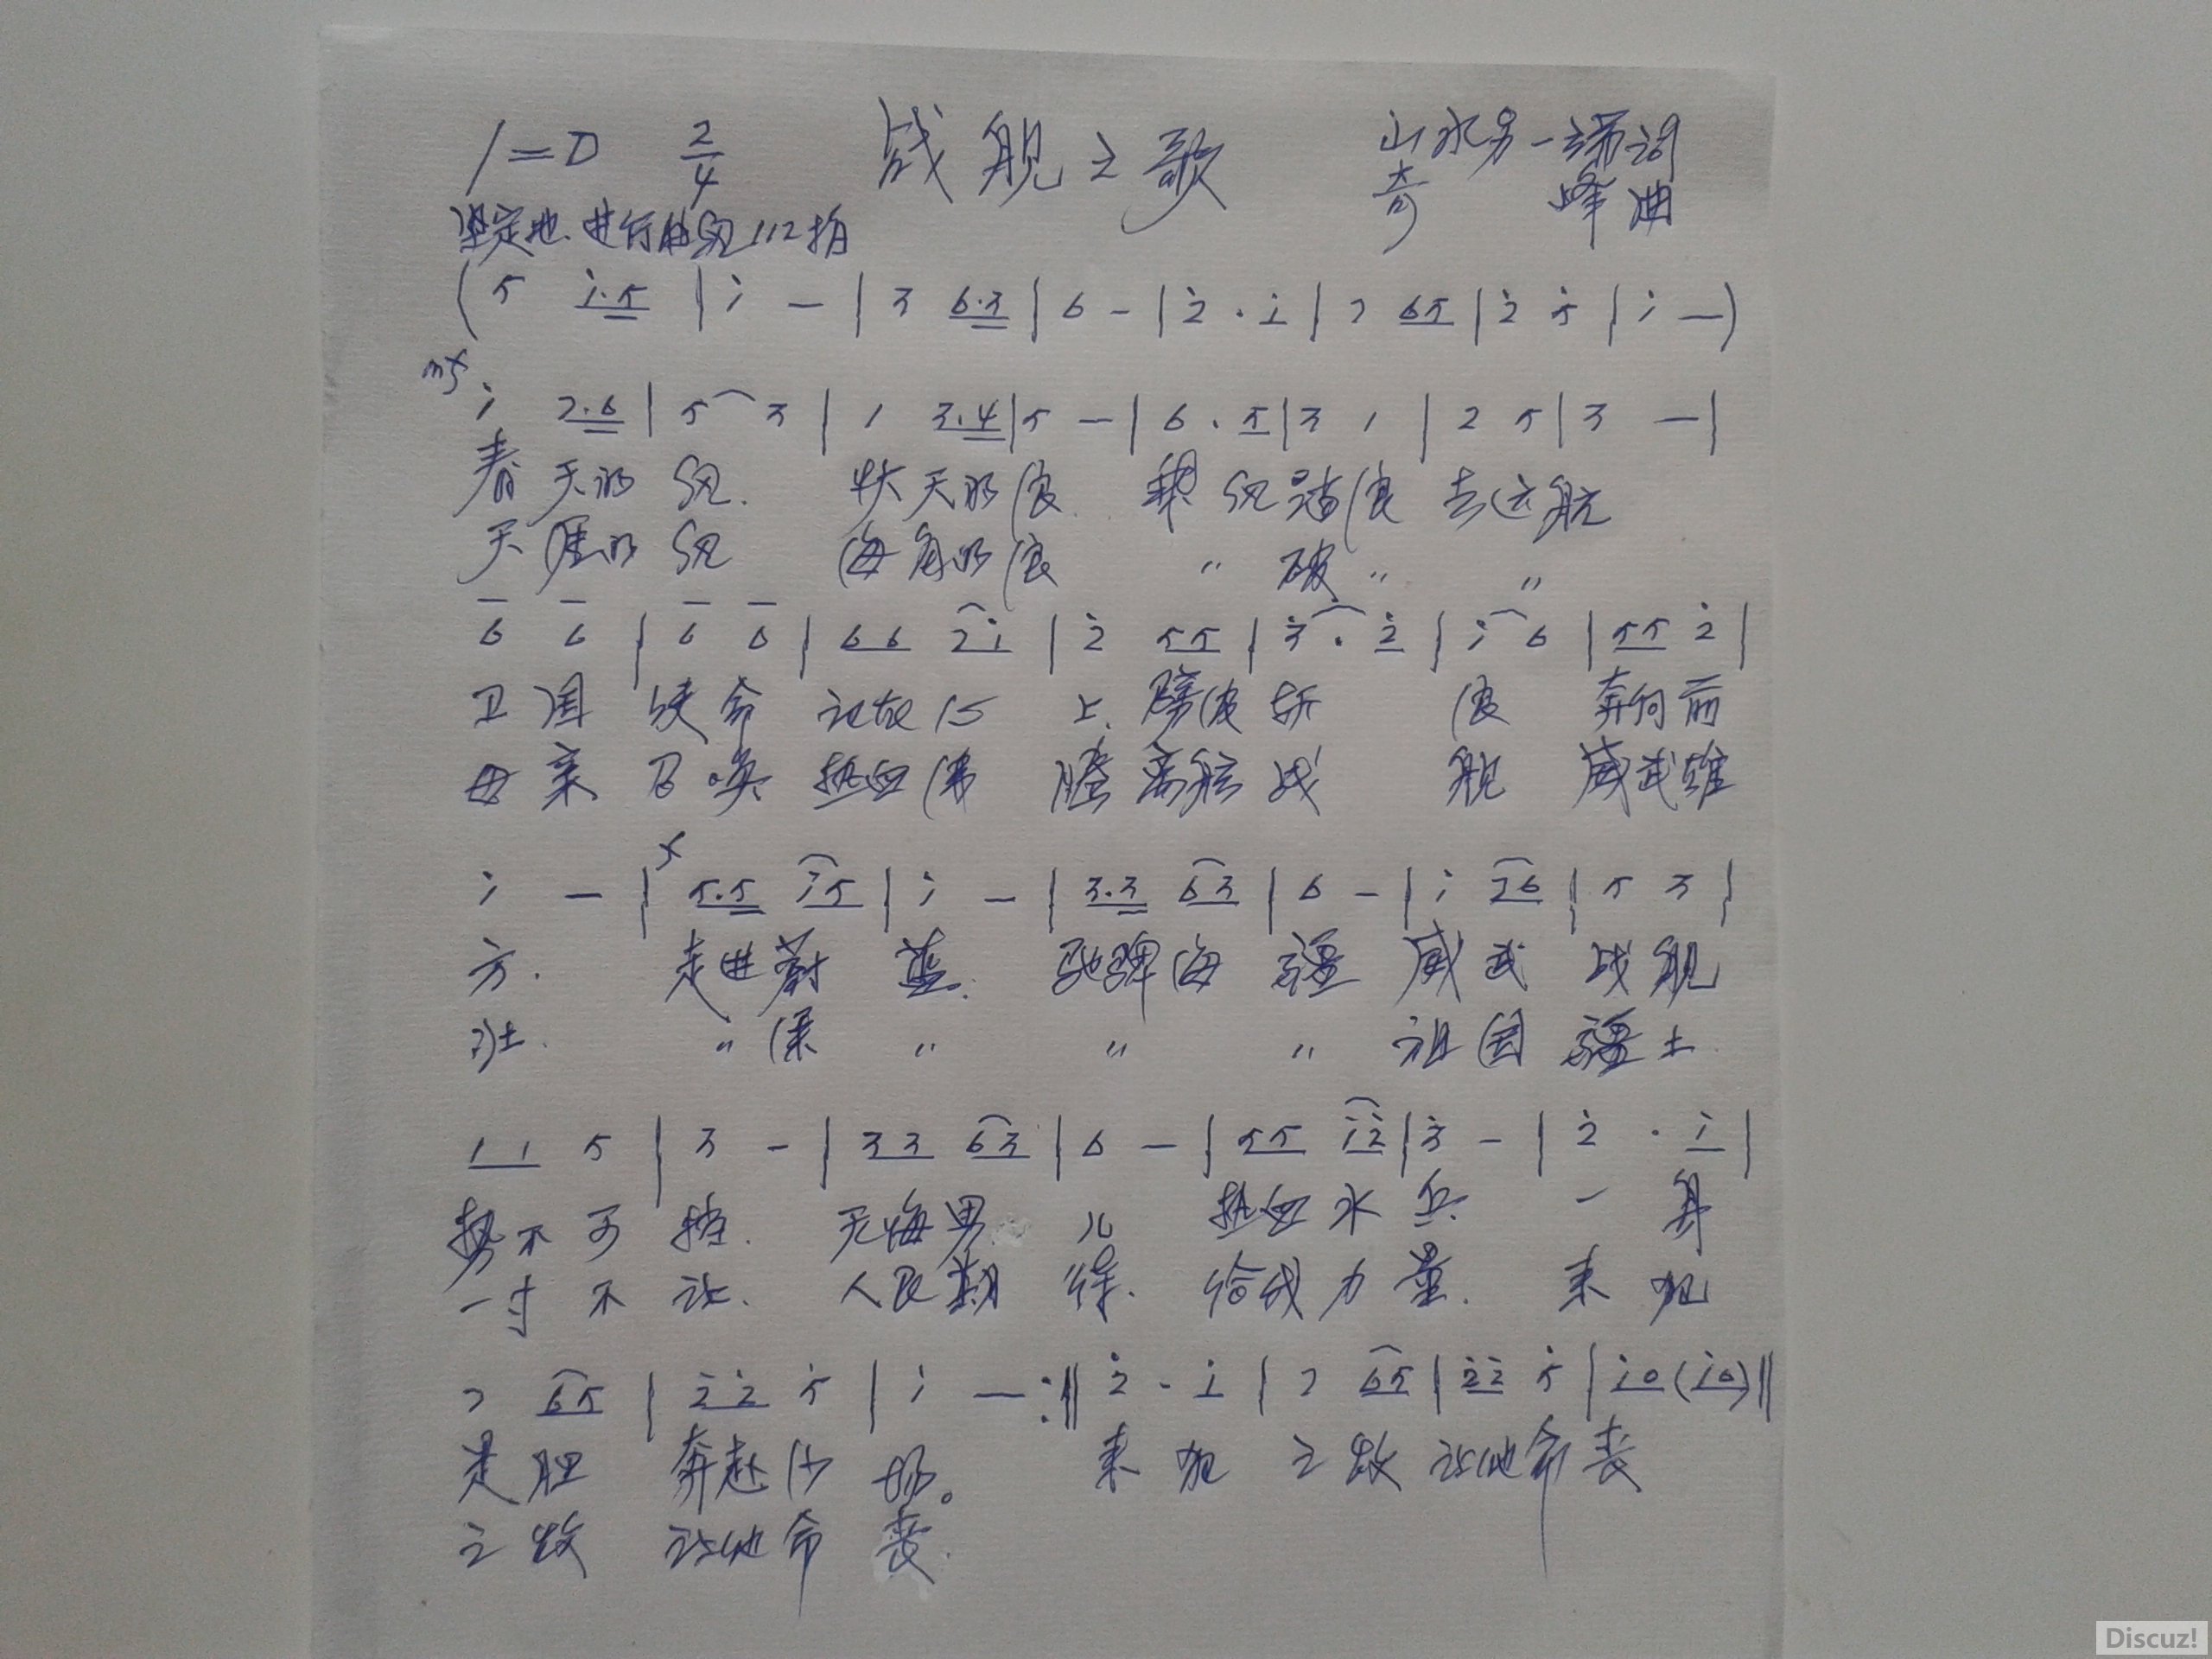 1=D 2/4 战舰之歌 山水另一端词
奇 峰 曲
坚定地.进行的 112拍
( 5 i.5 | i — | 3 6.3 | 6 - | 2̇ . i | 7 65 | 2̇ 5̇ | i — )
mf
i 7.6 | 5 3 | 1 3.4 | 5 — | 6 . 5 | 3 1 | 2 5 | 3 — |
春天的风. 秋天的浪. 乘风踏浪去远航
天涯的风 海角的浪 〃 破 〃 〃
6 6 | 6 6 | 66 7i | 2̇ 55 | 3̇ . 2̇ | i 6 | 55 2̇ |
卫国使命记在心上.劈波斩浪奔向前
母亲召唤热血沸腾离航战舰威武雄
i — | f 5.5 i5 | i — | 3.3 63 | 6 - | i 76 | 5 3 |
方. 走进蔚蓝. 驰骋海疆威武战舰
壮. 〃 深 〃 〃 〃 祖国疆土
11 5 | 3 - | 33 63 | 6 — | 55 i2̇ | 3̇ - | 2̇ . i |
势不可挡. 无悔男儿热血水兵. 一身
一寸不让. 人民期待. 给我力量. 来犯
7 65 | 2̇2̇ 5̇ | i — :‖ 2̇ . i | 7 65 | 2̇2̇ 5̇ | i0 (i0) ‖
是胆奔赴沙场。 来犯之敌让他命丧
之敌让他命丧.
Discuz!